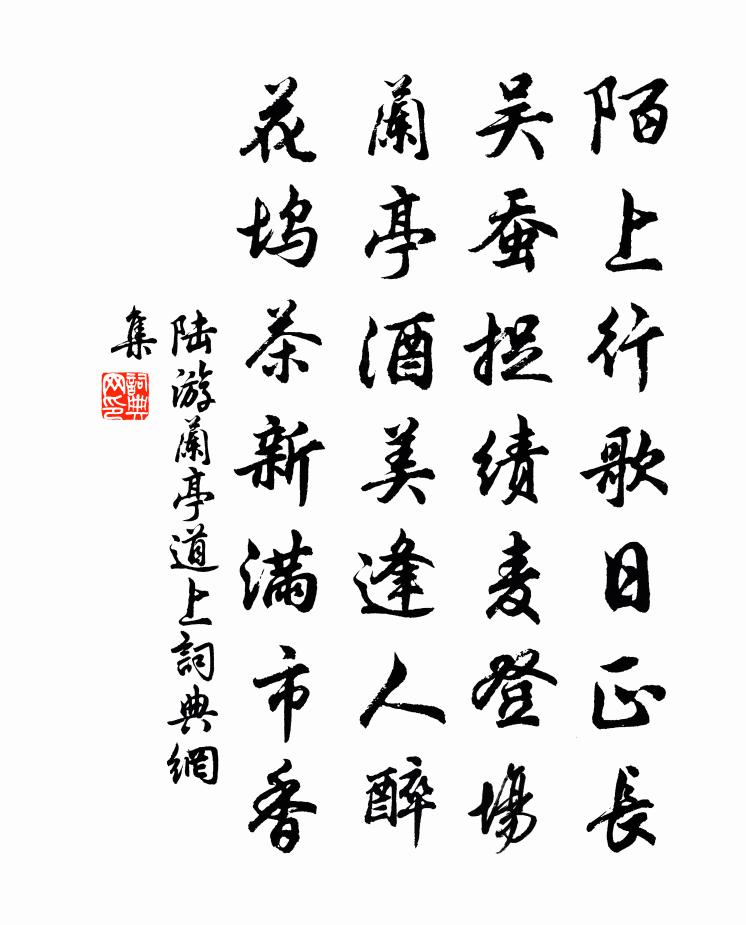 陌上行歌日正長
吴蚕捉绩麦登場
蘭亭酒美逢人醉
花坞茶新满市香
陆游蘭亭道上詞典網
集
詞典
网印